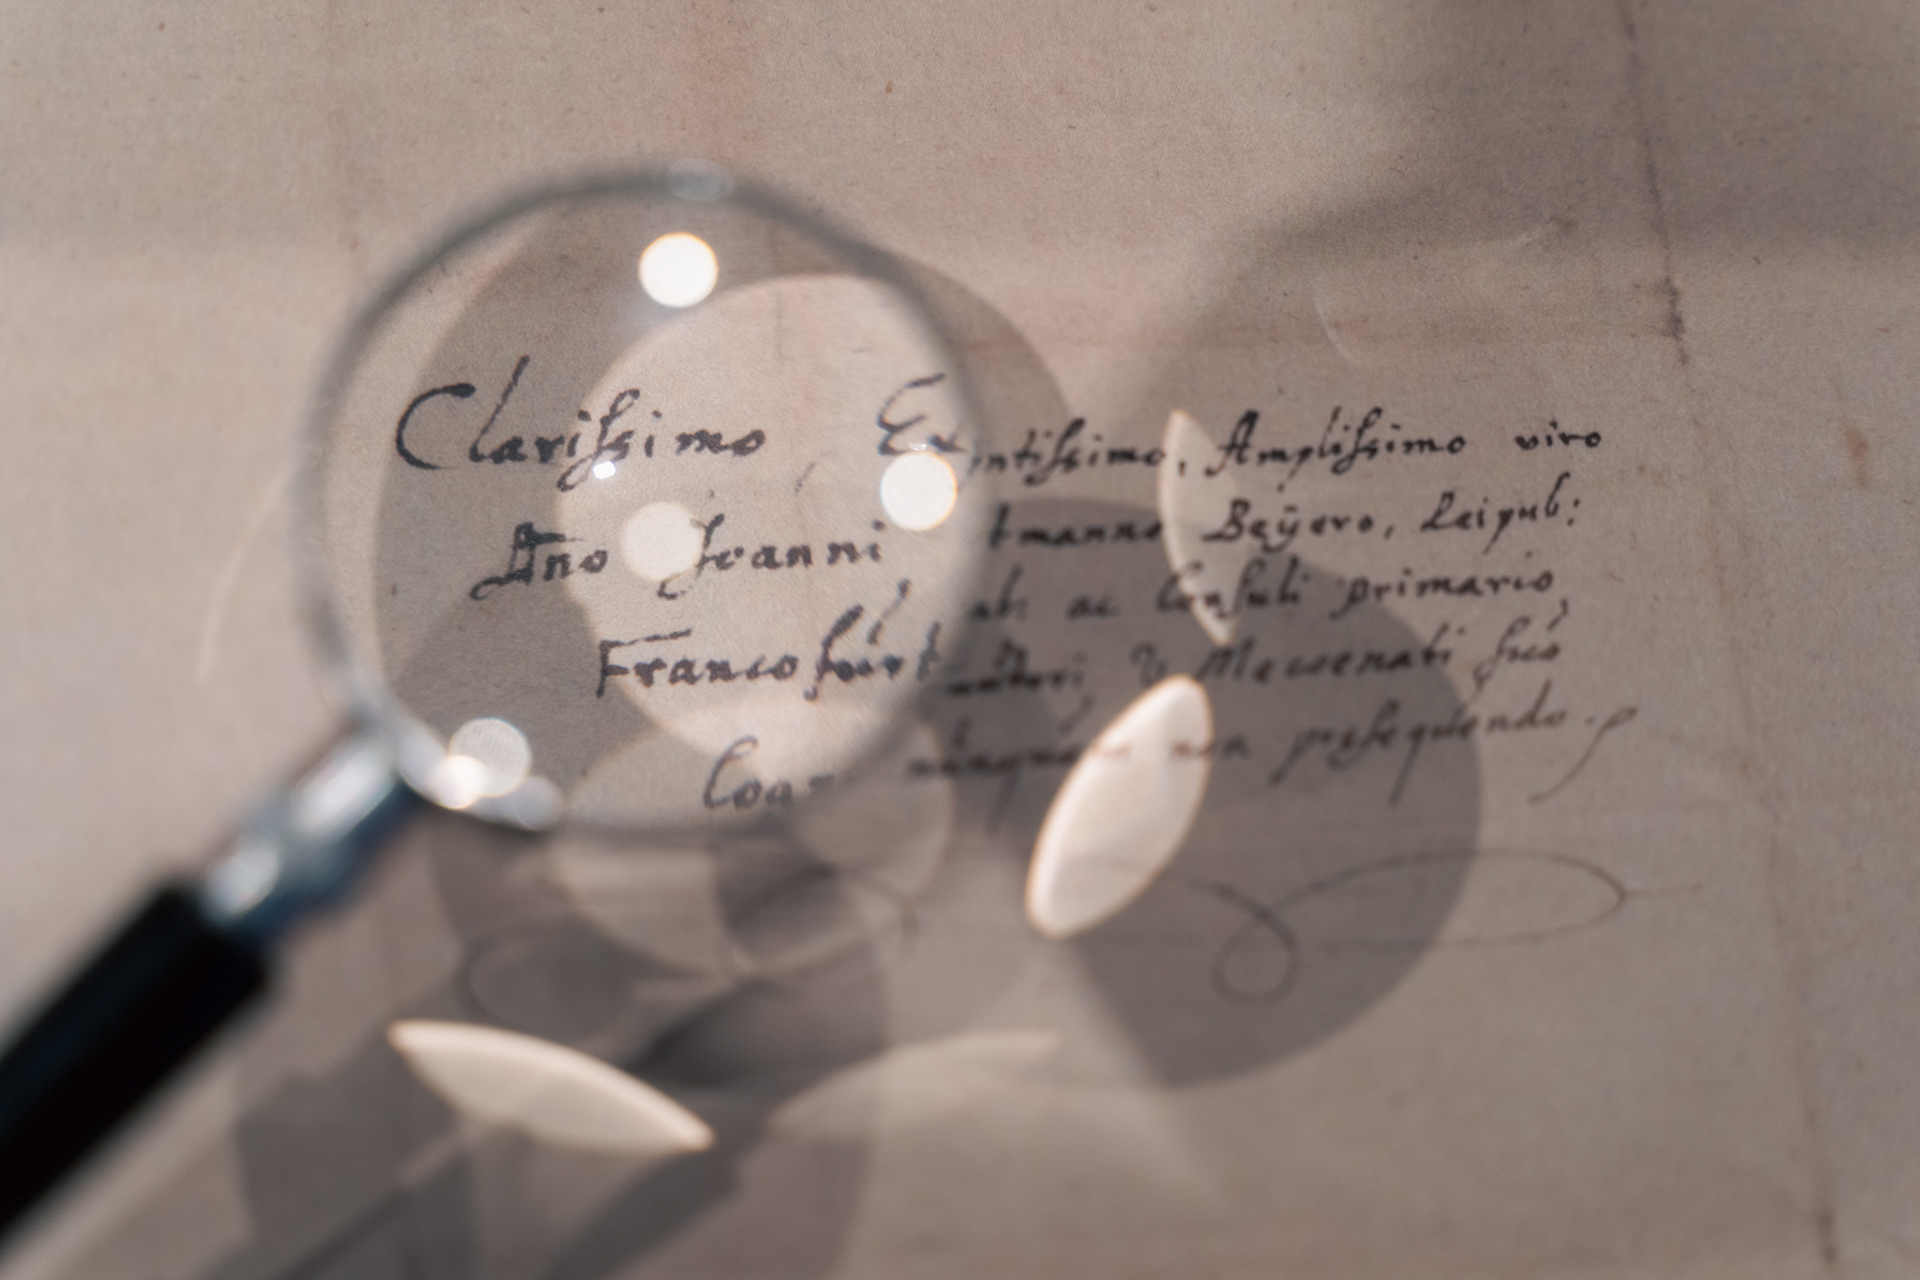 Clarissimo Ex ntissimo, Amplissimo viro
Dno Joanni tmanno Beÿero, Reipub:
ab: ac Consuli primario,
Francofurt Mecoenati suo
nunquam non prosequendo.